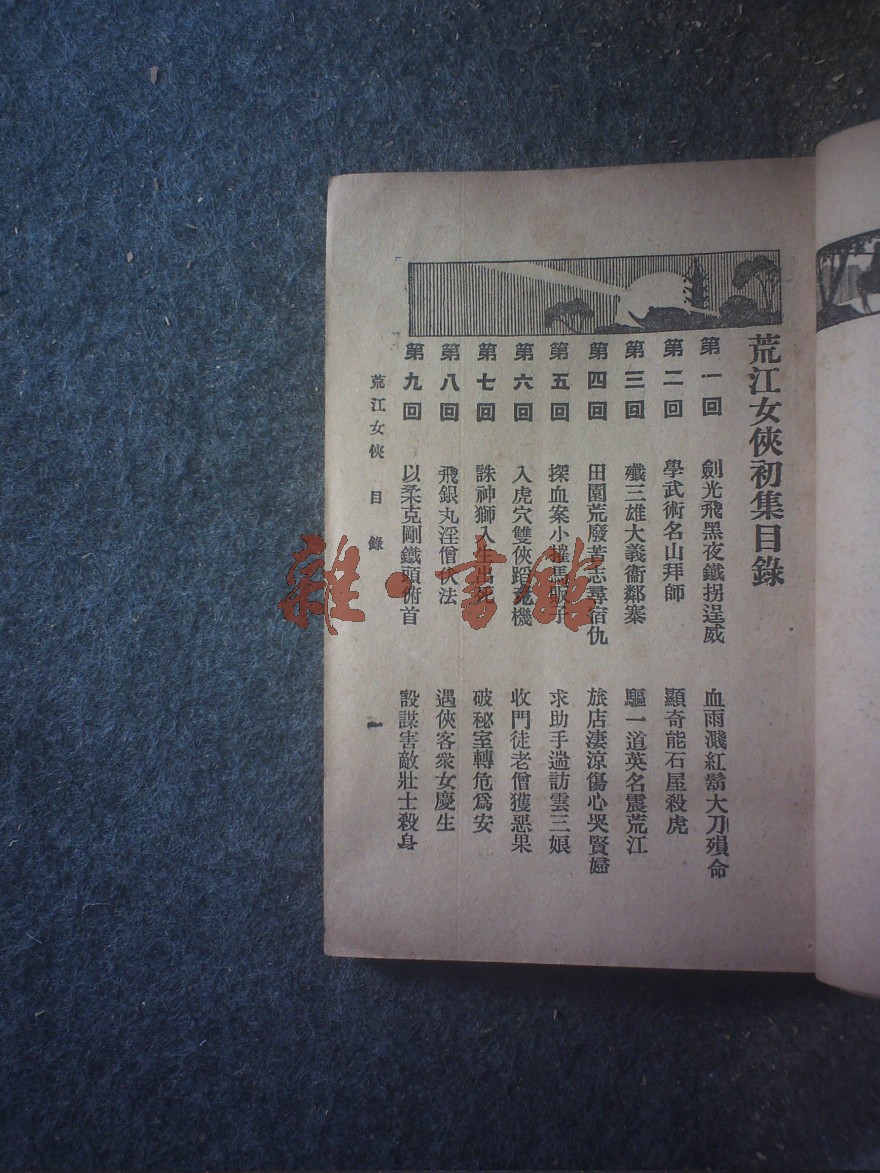 荒江女俠初集目錄
第一回 劍光飛黑夜鐵拐逞威 血雨濺紅鬍大刀殞命
第二回 學武術名山拜師 顯奇能石屋殺虎
第三回 殲三雄大義衞鄰寨 驅一道英名震荒江
第四回 田園荒廢苦志尋宿仇 旅店淒涼傷心哭賢婦
第五回 探血案小摧馬販子 求助手過訪雲三娘
第六回 入虎穴雙俠蹈危機 收門徒老僧獲惡果
第七回 誅神獅入生出死 破秘室轉危爲安
第八回 飛銀丸淫僧伏法 遇俠客衆女慶生
第九回 以柔克剛鐵頭俯首 設謀害敵壯士殺身
荒江女俠 目錄 一
雜·書館